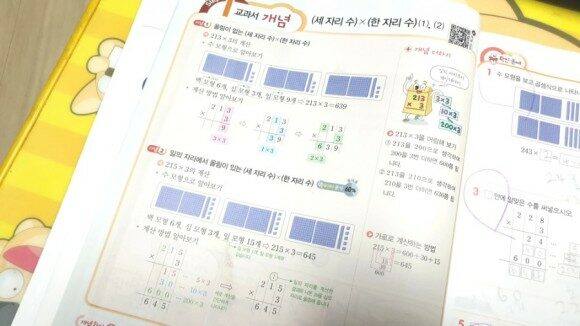 교과서 개념
(세 자리 수)×(한 자리 수)(1), (2)
올림이 없는 (세 자리 수)×(한 자리 수)
213×3의 계산
• 수 모형으로 알아보기
백 모형 6개, 십 모형 3개, 일 모형 9개 ⇨ 213×3=639
• 계산 방법 알아보기
2 1 3
× 3
9
3×3
⇨
2 1 3
× 3
3 9
1×3
⇨
2 1 3
× 3
6 3 9
2×3
일의 자리에서 올림이 있는 (세 자리 수)×(한 자리 수)
215×3의 계산
• 수 모형으로 알아보기
백 모형 6개, 십 모형 3개, 일 모형 15개 ⇨ 215×3=645
• 계산 방법 알아보기
2 1 5
× 3
1 5 ... 5×3
3 0 ... 10×3
6 0 0 ... 200×3
6 4 5
⇨
1
2 1 5
× 3
6 4 5
+ 개념 더하기
213
× 3
3×3
10×3
200×3
213×3을 어림해 보기
① 213을 200으로 생각하여
200을 3번 더하면 600입니다.
② 213을 210으로 생각하여
210을 3번 더하면 630입니다.
가로로 계산하는 방법
215×3=600+30+15
=645
15
30
600
1 수 모형을 보고 곱셈식으로 나타
243×
3
안에 알맞은 수를 써넣으시오.
2 2 8
× 3
2 8
× 3
5